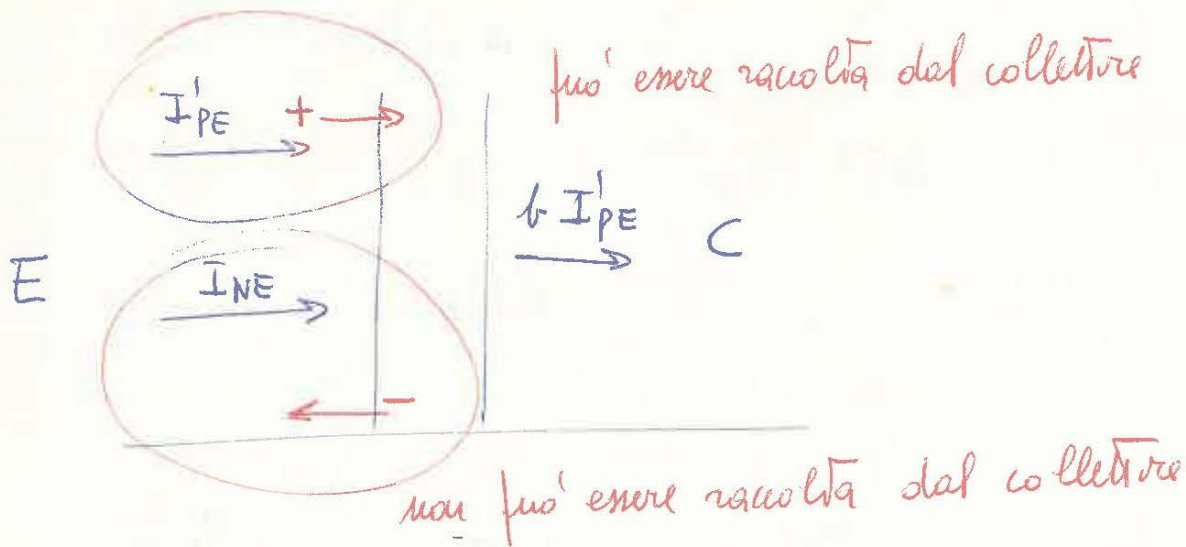 può essere raccolta dal collettore
I'PE +
b I'PE
C
E
INE
-
non può essere raccolta dal collettore